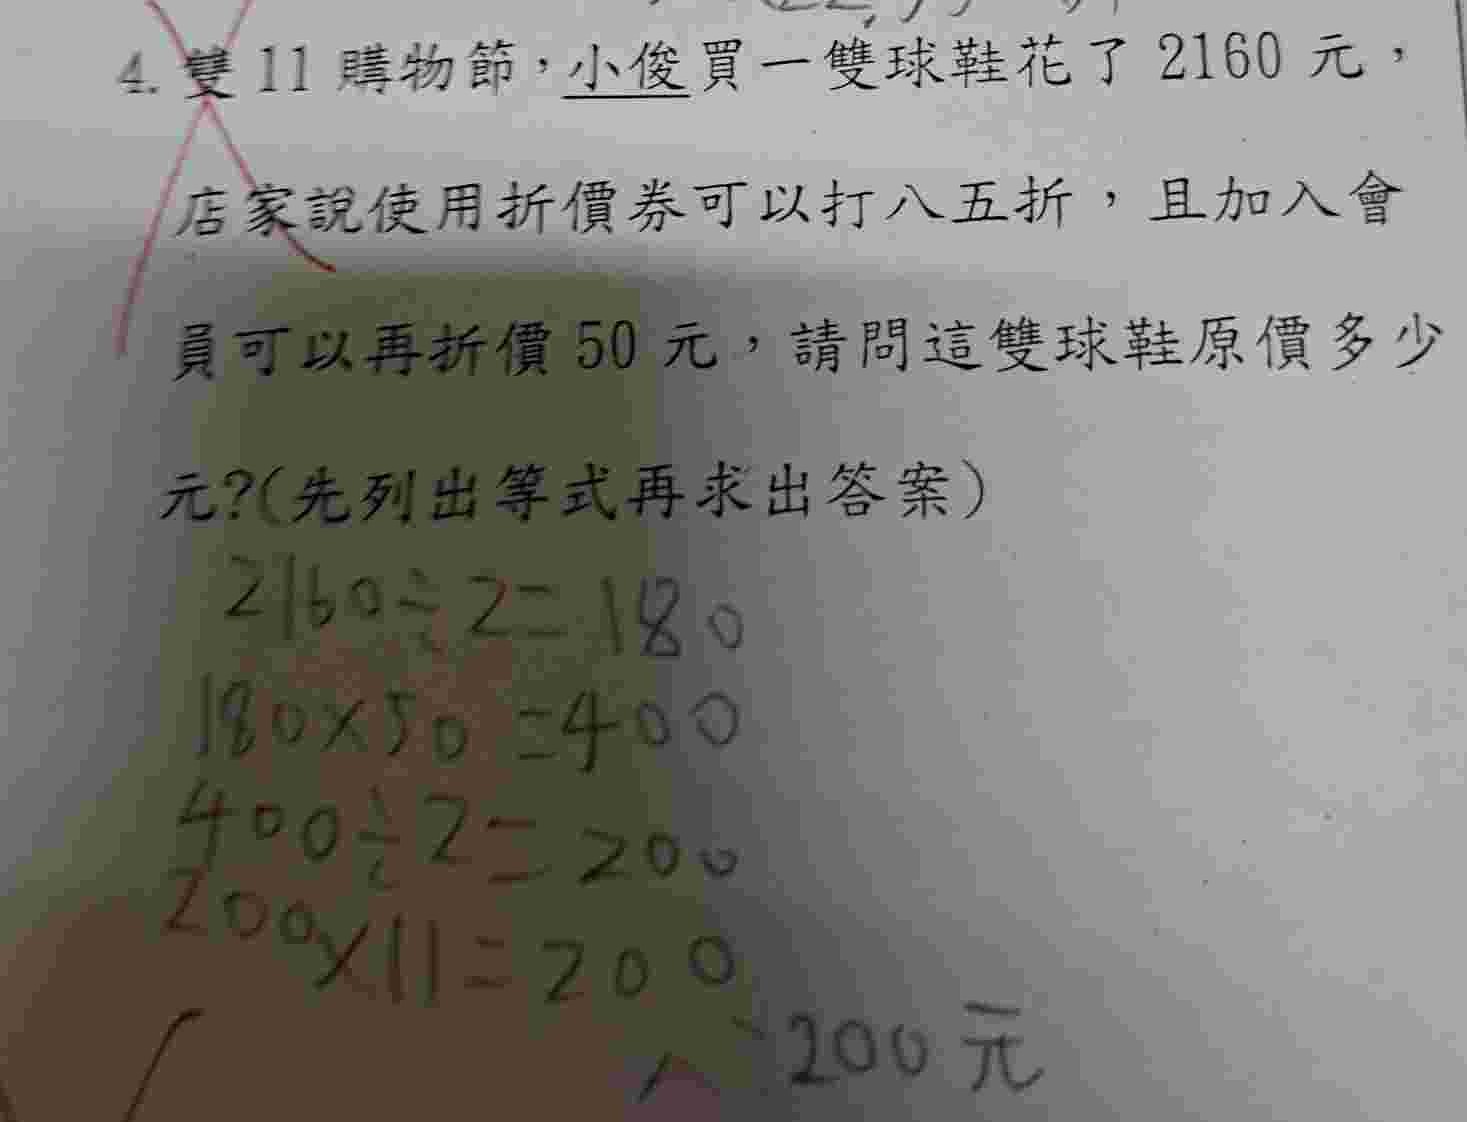 4. 雙 11 購物節，小俊買一雙球鞋花了 2160 元，
店家說使用折價券可以打八五折，且加入會
員可以再折價 50 元，請問這雙球鞋原價多少
元?(先列出等式再求出答案)
2160÷2=180
180×50=400
400÷2=200
200×11=200
200元